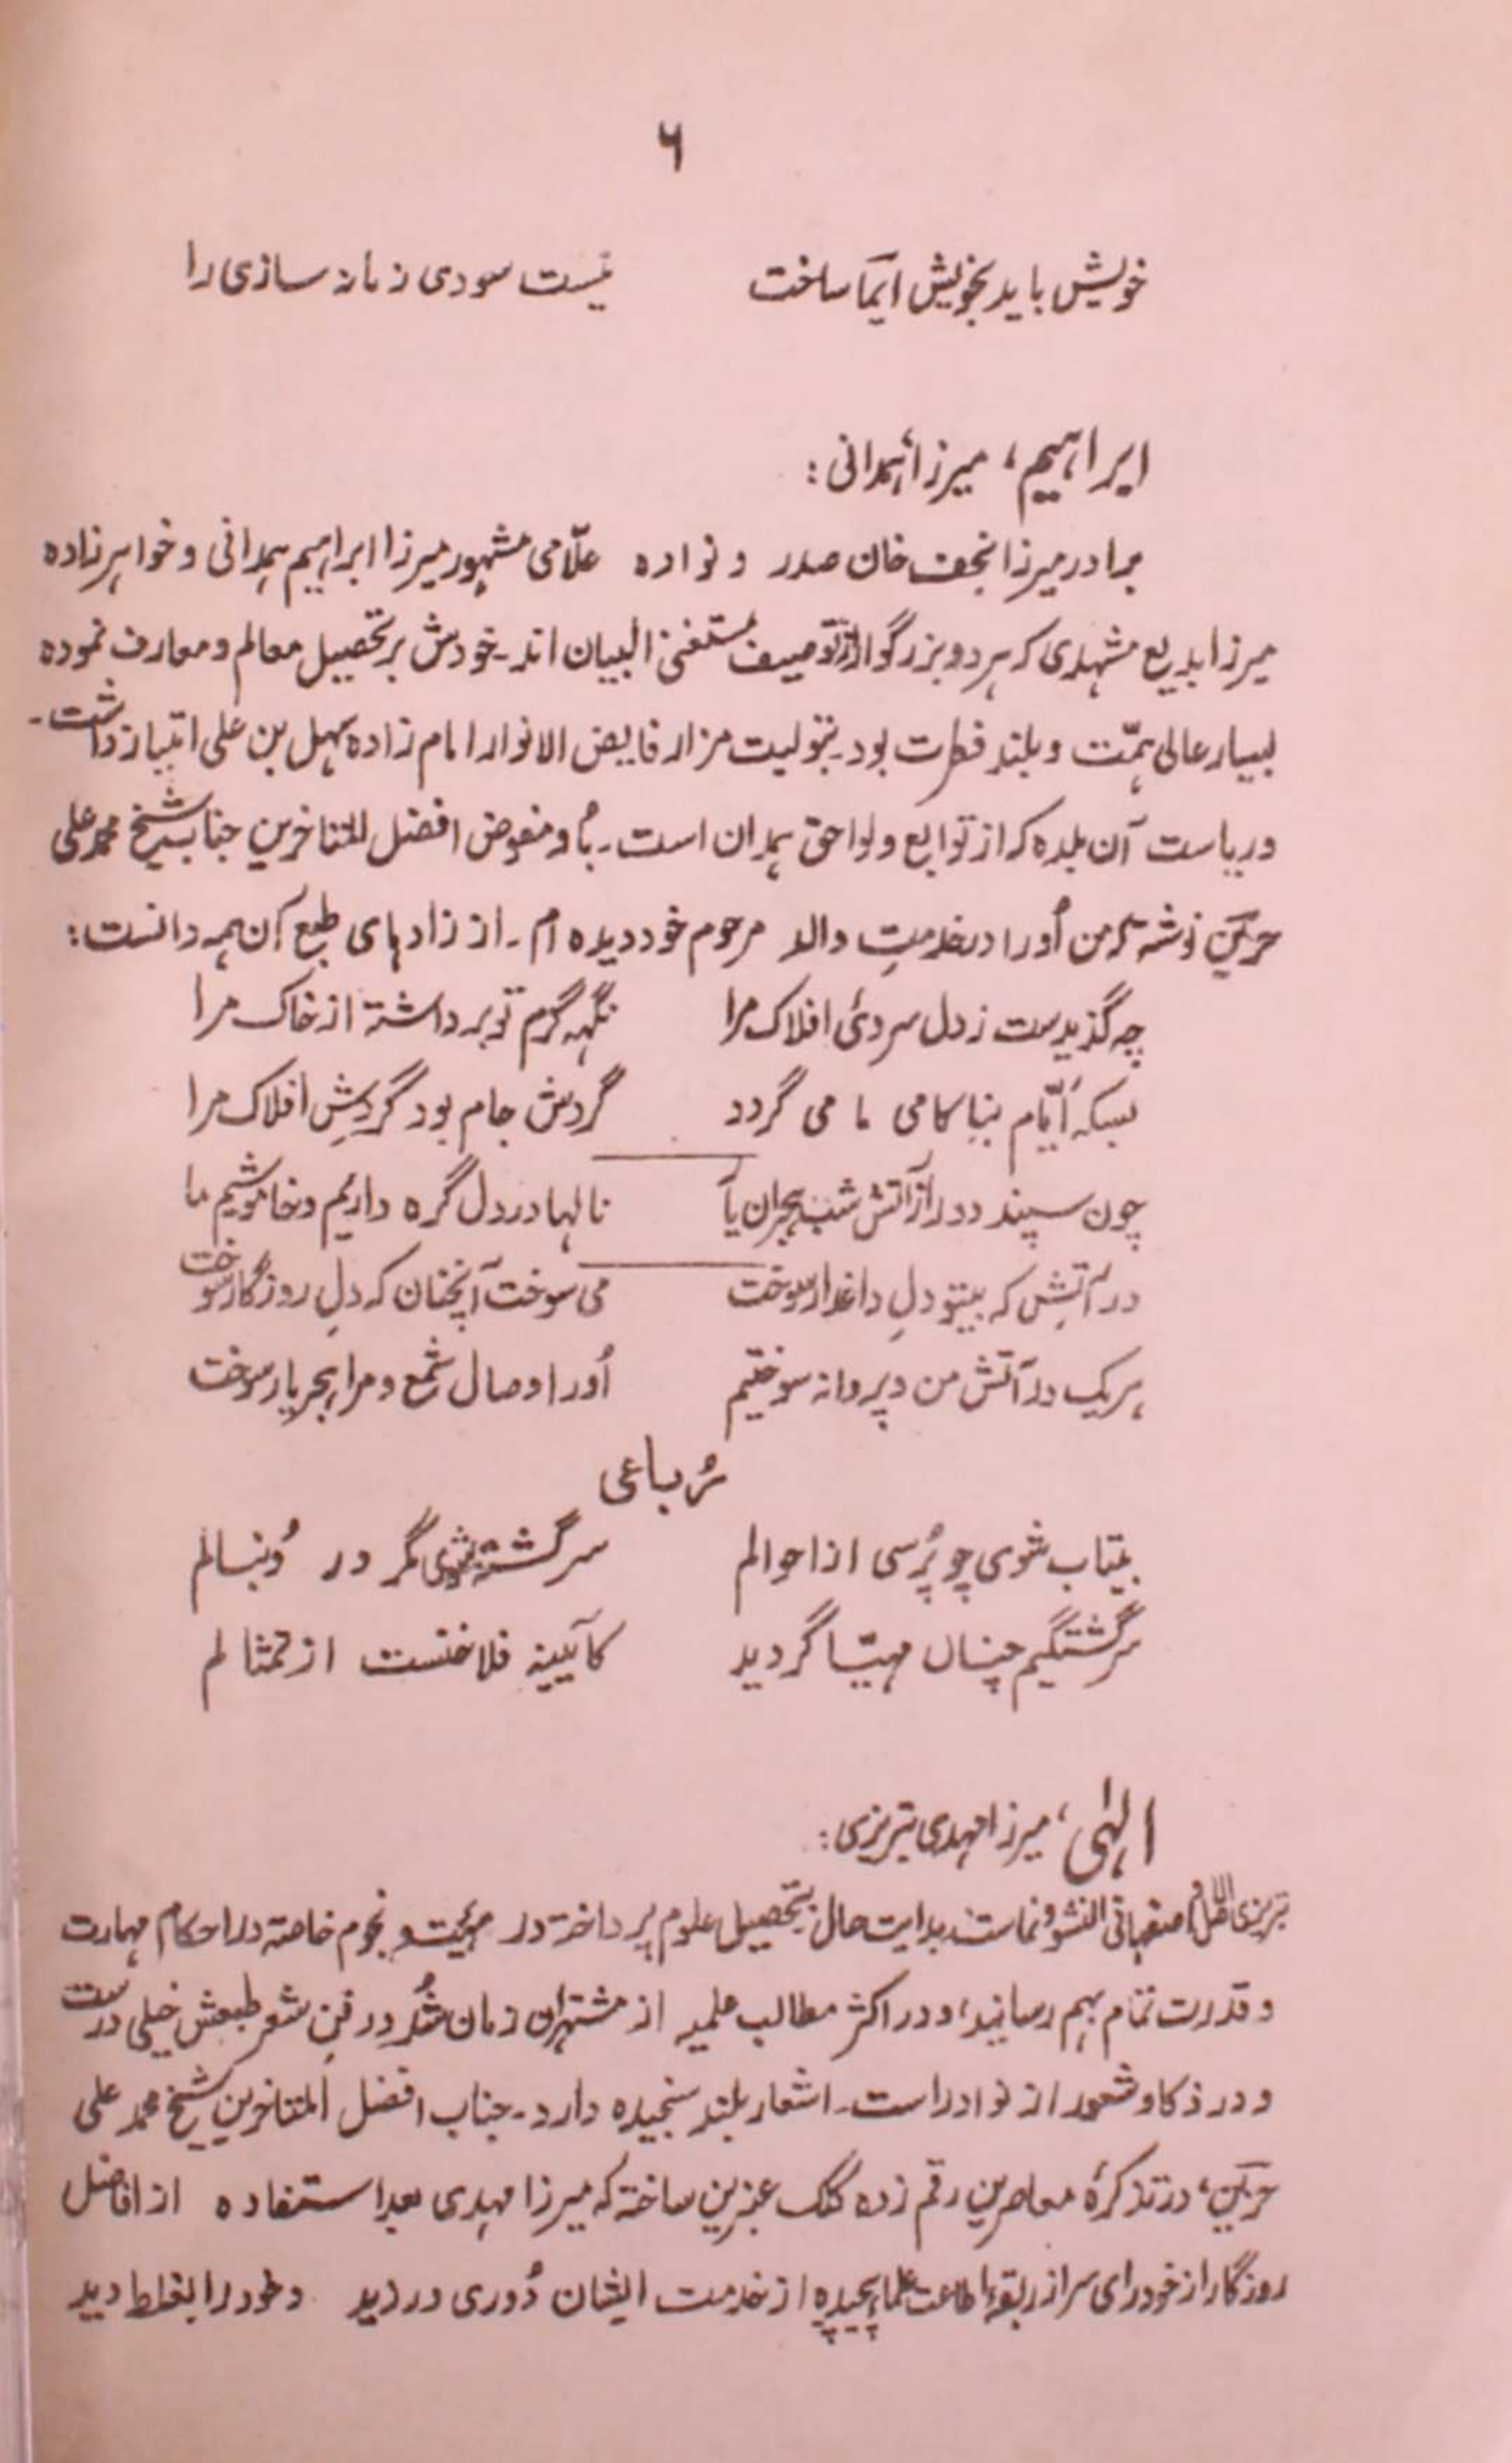 ۶
خویش باید بخویش ایما ساخت نیست سودی زمانہ سازی را
ابراہیم، میرزا ہمدانی:
برادر میرزا نجف خان صدر و نوادہ علّامی مشہور میرزا ابراہیم ہمدانی و خواہر زادہ
میرزا بدیع مشہدی کہ ہر دو بزرگوار از توصیف مستغنی البیان اند۔ خودش بر تحصیل معالم و معارف نمودہ
بسیار عالی ہمّت و بلند فطرت بود۔ بتولیت مزار فایض الانوار امام زادہ سہل بن علی امتیاز داشت۔
و ریاست آن بلدہ کہ از توابع و لواحق ہمدان است۔ باُو مفوض افضل المتاخرین جناب شیخ محمد علی
حزین نوشتہ کہ من اُو را در خدمتِ والد مرحوم خود دیدہ ام۔ از زادہای طبع آن ہمہ دانست:
چہ گذیدست ز دل سردئ افلاک مرا نگہہ گرم تو برداشتہ از خاک مرا
بسکہ اَیّام بناکامی ما می گردد گردش جام بود گردشِ افلاک مرا
چون سپند دور از آتش شب ہجران یآ نالہا در دل گرہ داریم و خاموشیم ما
در آتشِ کہ بیتو دلِ داغدار سوخت می سوخت آنچنان کہ دلِ روزگار سوخت
ہر یک در آتش من و پروانہ سوختیم اُو را وصال شمع و مرا ہجر یار سوخت
رُباعی
بیتاب شوی چو پُرسی از احوالم سرگشتہ شوی مگر در دُنبالم
سرگشتگیم چنان مہیّا گردید کآیینہ فلاخنست از تمثالم
الہٰی، میرزا مہدی تبریزی:
تبریزی الاصل و اصفہانی النشو و نماست۔ بدایت حال بتحصیل علوم پرداختہ در ہیئت و نجوم خاصتہ در احکام مہارت
و قدرت تمام بہم رسانید، و در اکثر مطالب علمیہ از مشتہران زمان شُد در فنِ شعر طبعش خیلی درست
و در ذکا و شعور از نوادر است۔ اشعار بلند سنجیدہ دارد۔ جناب افضل المتاخرین شیخ محمد علی
حزین، در تذکرۂ معاصرین رقم زدہ کلک عنبرین ساختہ کہ میرزا مہدی بعد استفادہ از افاضل
روزگار از خود رای سر از ربقۂ اطاعت علما پیچیدہ از خدمت ایشان دُوری ورزید و خود را بغلط دید